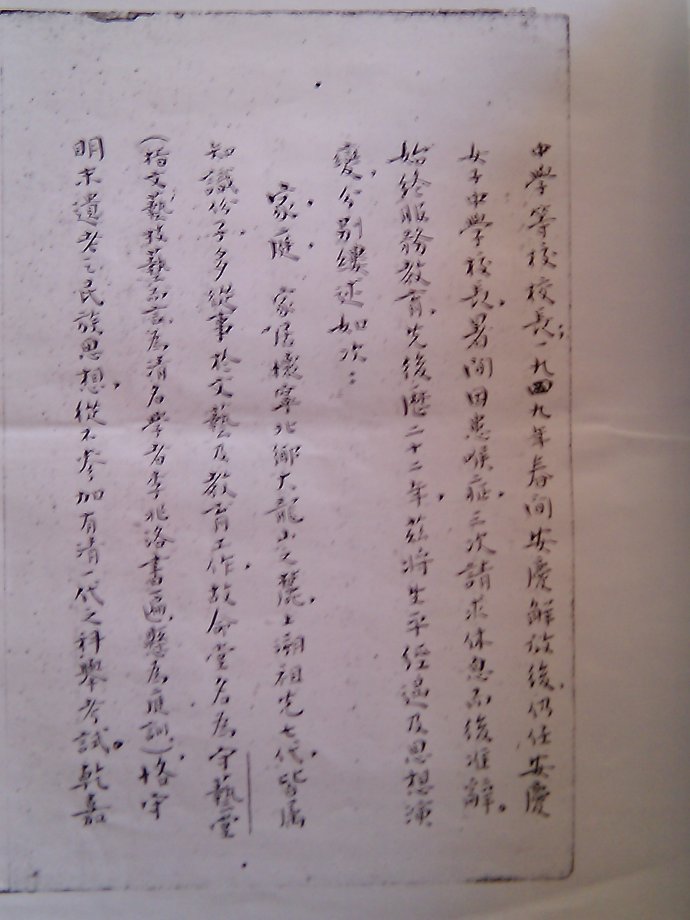 中學等校校長；一九四九年春間安慶解放後，仍任安慶
女子中學校長，暑間因患喉症，三次請求休息而後准辭。
始終服務教育，先後歷二十二年，茲將生平經過及思想演
變，分別縷述如次：
家庭，家居懷寧北鄉大龍山之麓，上溯祖先七代，皆屬
知識份子，多從事於文藝及教育工作，故命堂名為守藝堂
（指文藝技藝而言為清名學者李兆洛書匾，懸為庭訓，）恪守
明末遺老之民族思想，從不參加有清一代之科舉考試。乾嘉